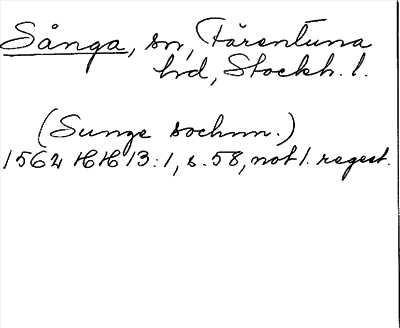 Sånga, sn, Färentuna
hd, Stockh. l.
(Sunge sochnn.)
1562 HH 13:1, s. 58, not 1. regest.